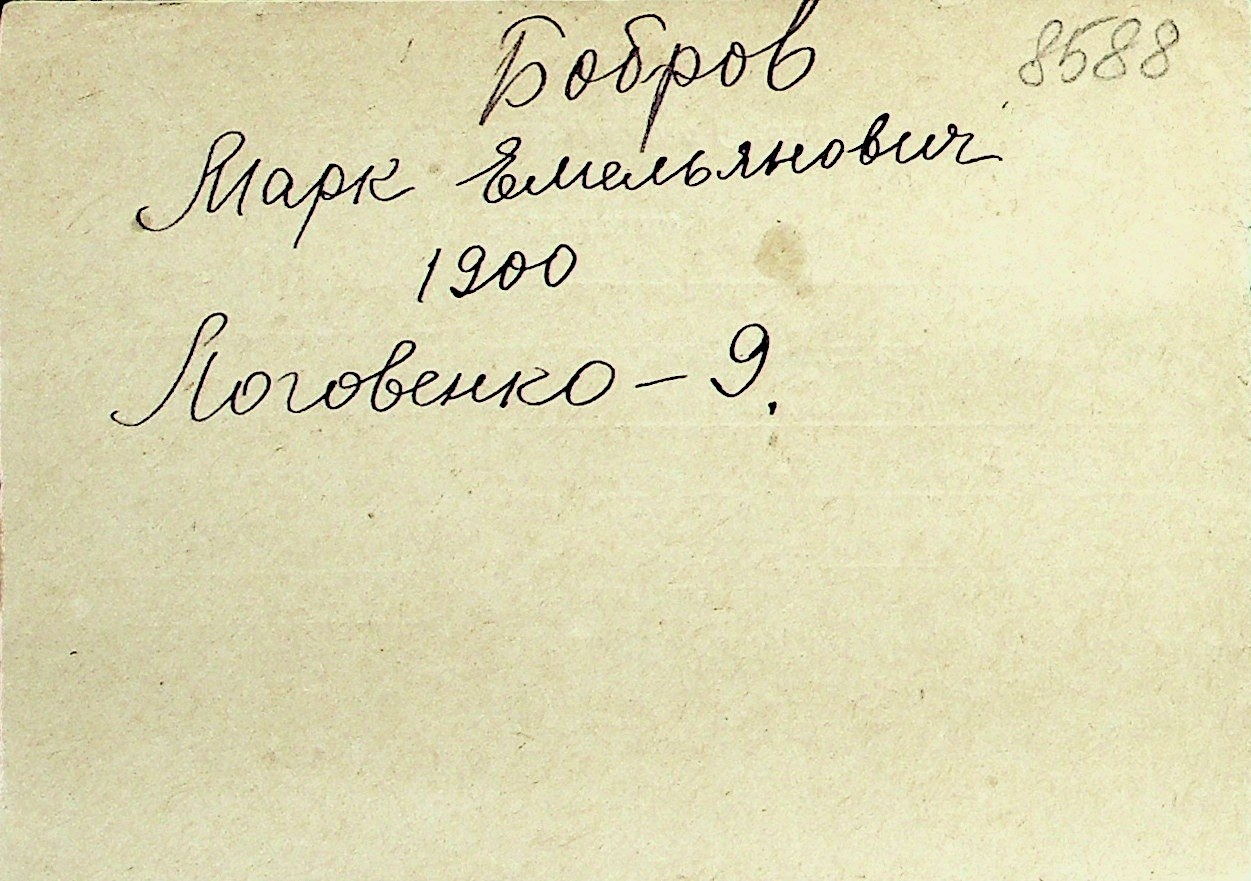 Бобров 8588
Марк Емельянович
1900
Логовенко – 9.